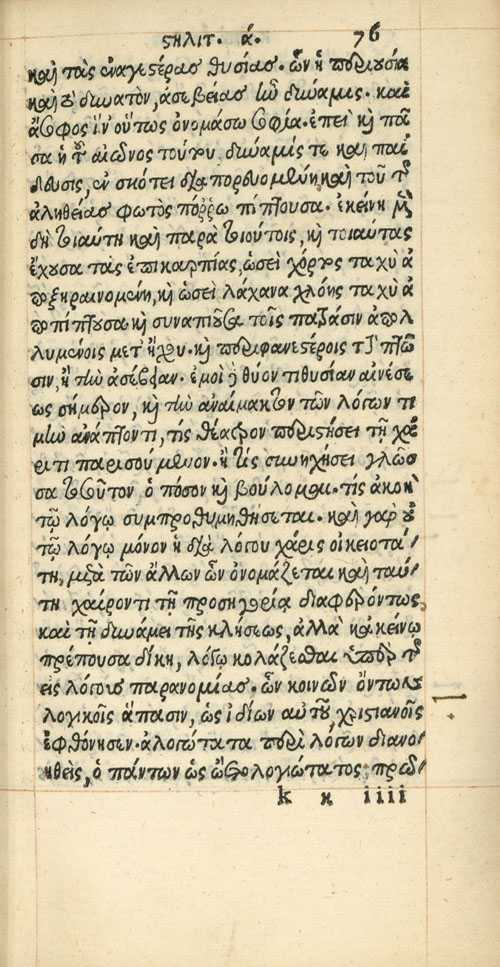 στηλιτ. ά. 76
καὶ τὰς ἐναγεστέρας θυσίας. ὧν ἡ περιουσία
καὶ οὐ δυνατὸν, ἀσεβείας ἦν δύναμις. καὶ
ἄσοφος ἵν' οὕτως ὀνομάσω σοφία. ἐπεὶ καὶ πᾶ
σα ἡ τοῦ αἰῶνος τούτου δύναμίς τε καὶ παί
δευσις, ἐν σκότει διαπορευομένη, καὶ τοῦ τῆς
ἀληθείας φωτὸς πόρρω πίπτουσα. ἐκείνη μὲν
δὴ τοιαύτη καὶ παρὰ τοιούτοις, καὶ τοιαύτας
ἔχουσα τὰς ἐπικαρπίας, ὡσεὶ χόρτος ταχὺ ἀ
ποξηραινομένη, καὶ ὡσεὶ λάχανα χλόης ταχὺ ἀ
ποπίπτουσα καὶ συναπιοῦσα τοῖς παξάσιν ἀπολ
λυμένοις μετ' ἤχου. καὶ περιφανεστέροις τὴν πτῶ
σιν, ἢ τὴν ἀσέβειαν. ἐμοὶ δὲ θύοντι θυσίαν αἰνέσε
ως σήμερον, καὶ τὴν ἀναίμακτον τῶν λόγων τι
μὴν ἀνάπτοντι, τίς θέατρον περιστήσει τῇ χά
ριτι παρισούμενον. ἢ τίς συνηχήσει γλῶσ
σα τοσοῦτον ὁ πόσον καὶ βούλομαι. τίς ἀκοὴ
τῷ λόγῳ συμπροθυμηθήσεται. καὶ γὰρ οὐ
τῷ λόγῳ μόνον ἡ διὰ λόγου χάρις οἰκειοτά/
τη, μετὰ τῶν ἄλλων ὧν ὀνομάζεται καὶ ταύ/
τῃ χαίροντι τῇ προσηγορίᾳ διαφερόντως,
καὶ τῇ δυνάμει τῆς κλήσεως, ἀλλὰ κἀκείνῳ
πρέπουσα δίκη, λόγῳ κολάζεσθαι ὑπὲρ τῆς
εἰς λόγους παρανομίας. ὧν κοινῶν ὄντων
λογικοῖς ἅπασιν, ὡς ἰδίων αὐτοῦ, χριστιανοῖς
ἐφθόνησεν. ἀλογώτατα περὶ λόγων διανο/
ηθεὶς, ὁ πάντων ὡς ᾤετο λογιώτατος. πρῶ/
k κ iiii